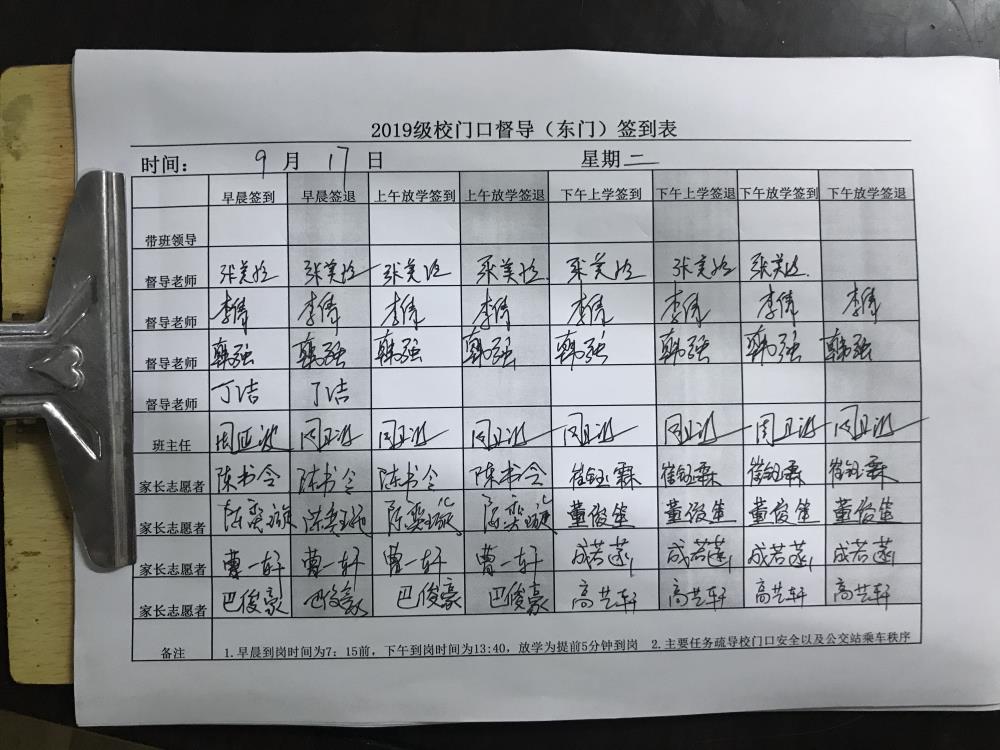 2019级校门口督导（东门）签到表
时间： 9 月 17 日 星期 二
早晨签到 早晨签退 上午放学签到 上午放学签退 下午上学签到 下午上学签退 下午放学签到 下午放学签退
带班领导
督导老师 张美玲 张美玲 张美玲 张美玲 张美玲 张美玲 张美玲
督导老师 李伟 李伟 李伟 李伟 李伟 李伟 李伟 李伟
督导老师 韩强 韩强 韩强 韩强 韩强 韩强 韩强 韩强
督导老师 丁洁 丁洁
班主任
家长志愿者 陈书令 陈书令 陈书令 陈书令 崔钰霖 崔钰霖 崔钰霖 崔钰霖
家长志愿者 陈奕璇 陈奕璇 陈奕璇 陈奕璇 董俊笙 董俊笙 董俊笙 董俊笙
家长志愿者 曹一轩 曹一轩 曹一轩 曹一轩 成若菡 成若菡 成若菡 成若菡
家长志愿者 巴俊豪 巴俊豪 巴俊豪 巴俊豪 高艺轩 高艺轩 高艺轩 高艺轩
备注 1.早晨到岗时间为7：15前，下午到岗时间为13:40，放学为提前5分钟到岗 2.主要任务疏导校门口安全以及公交站乘车秩序